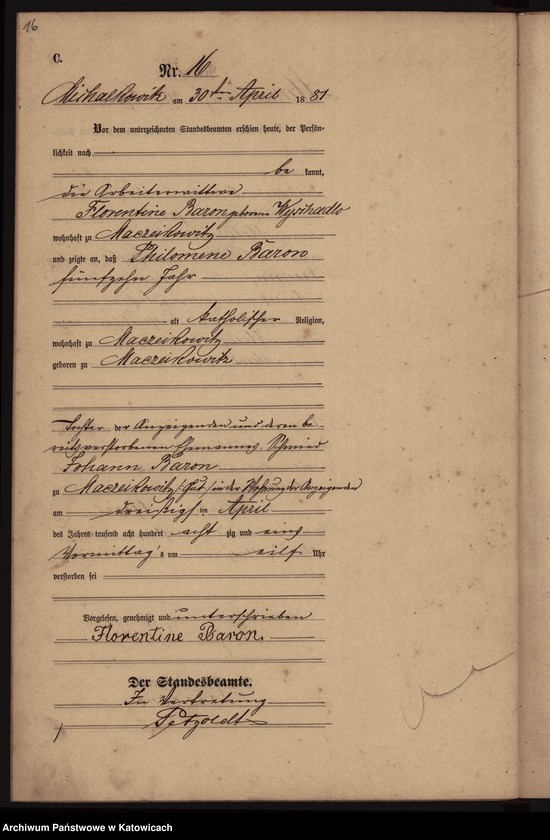 16
C.
Nr. 16
Michalkowitz am 30ten April 1881
Vor dem unterzeichneten Standesbeamten erschien heute, der Persön-
lichkeit nach
be kannt,
die Arbeiterwittwe
Florentine Baron geborene Wysihadlo
wohnhaft zu Maczeikowitz
und zeigte an, daß Philomene Baron
fünfzehn Jahr
alt katholischer Religion,
wohnhaft zu Maczeikowitz
geboren zu Maczeikowitz
Tochter der Anzeigenden und deren be-
reits verstorbenen Ehemannes Schmied
Johann Baron
zu Maczeikowitz (Gut) in der Wohnung der Anzeigenden
am dreißigsten April
des Jahres tausend acht hundert acht zig und eins
Vormittag's um eilf Uhr
verstorben sei
Vorgelesen, genehmigt und unterschrieben
Florentine Baron.
Der Standesbeamte.
In Vertretung
Petzoldt
Archiwum Państwowe w Katowicach